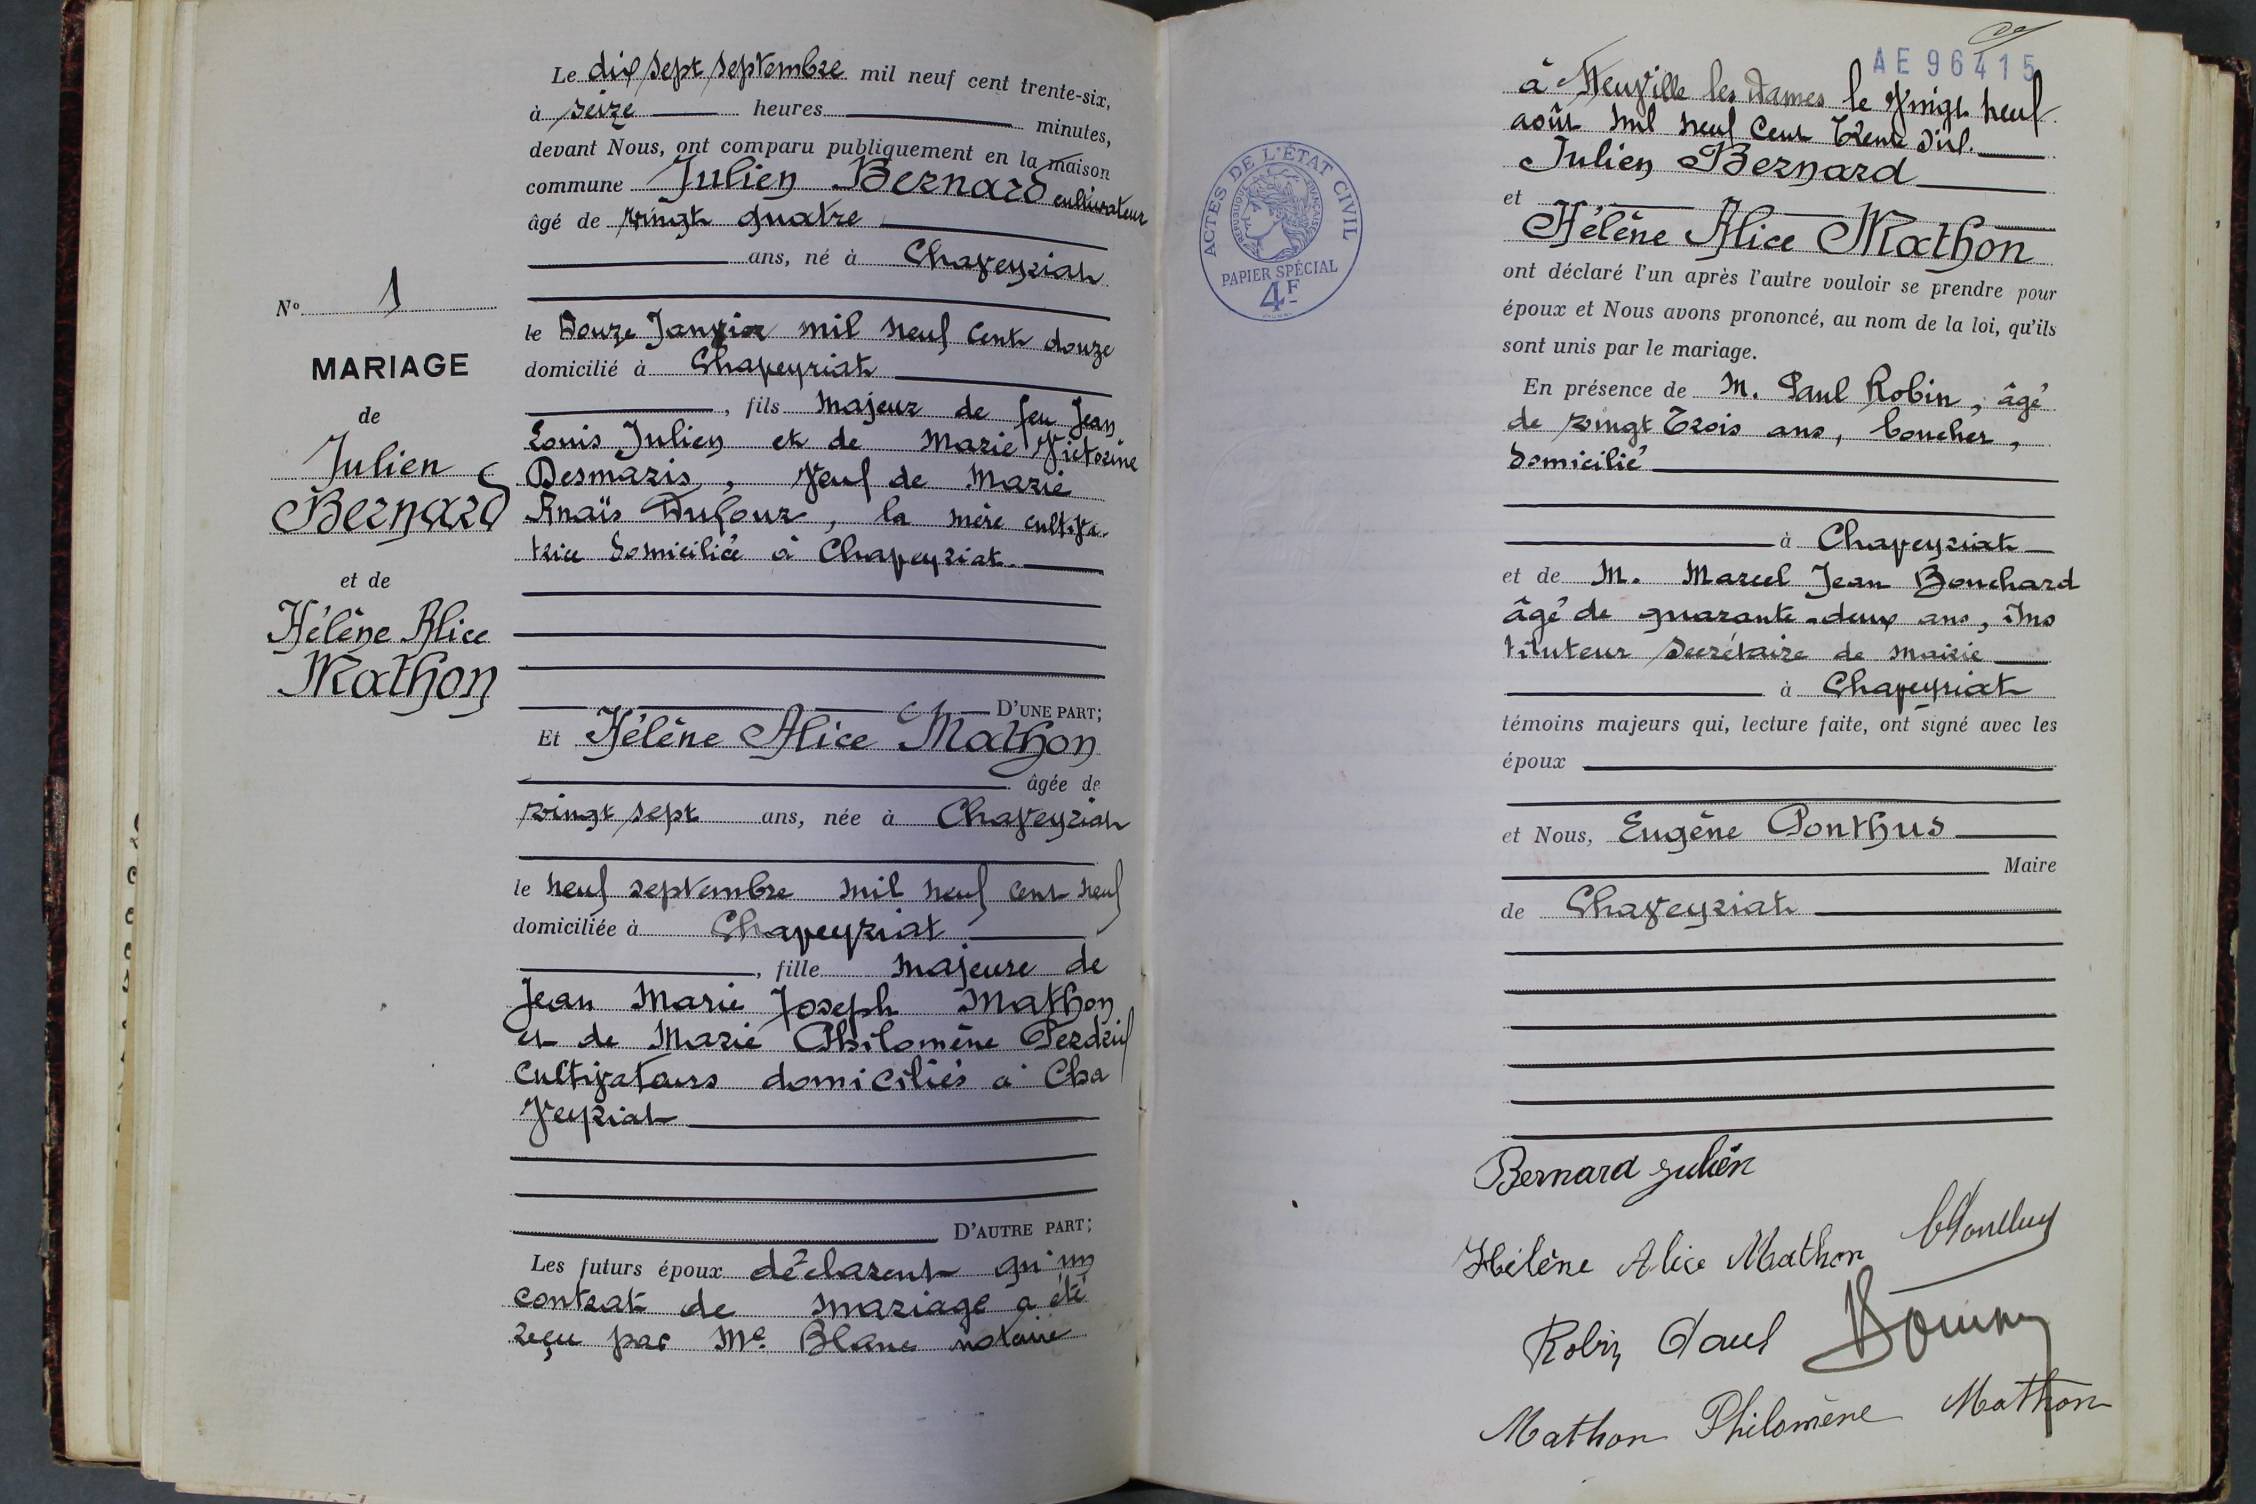 Le dix sept septembre mil neuf cent trente-six,
à seize heures minutes,
devant Nous, ont comparu publiquement en la maison
commune Julien Bernard cultivateur
âgé de vingt quatre
ans, né à Chaveyriat
le douze Janvier mil neuf cent douze
domicilié à Chaveyriat
, fils majeur de feu Jean
Louis Julien et de Marie Victorine
Desmaris, veuf de Marie
Anaïs Dufour, la mère cultiva-
trice domiciliée à Chaveyriat.
D'UNE PART;
Et Hélène Alice Mathon
âgée de
vingt sept ans, née à Chaveyriat
le neuf septembre mil neuf cent neuf
domiciliée à Chaveyriat
, fille majeure de
Jean Marie Joseph Mathon
et de Marie Philomène Perdrix
cultivateurs domiciliés à Cha
veyriat
D'AUTRE PART;
Les futurs époux déclarent qu'un
contrat de mariage a été
reçu par Me. Blanc notaire
No. 1
MARIAGE
de
Julien
Bernard
et de
Hélène Alice
Mathon
AE96415
ACTES DE L'ÉTAT CIVIL
RÉPUBLIQUE FRANÇAISE
PAPIER SPÉCIAL
4F
à Neuville les Dames le vingt neuf
août mil neuf cent trente six.
Julien Bernard
et
Hélène Alice Mathon
ont déclaré l'un après l'autre vouloir se prendre pour
époux et Nous avons prononcé, au nom de la loi, qu'ils
sont unis par le mariage.
En présence de M. Paul Robin, âgé
de vingt trois ans, boucher,
domicilié
à Chaveyriat
et de M. Marcel Jean Bouchard
âgé de quarante-deux ans, Ins
tituteur secrétaire de mairie
à Chaveyriat
témoins majeurs qui, lecture faite, ont signé avec les
époux
et Nous, Eugène Ponthus
Maire
de Chaveyriat
Bernard Julien
Hélène Alice Mathon
Robin Paul
Mathon Philomène Mathon